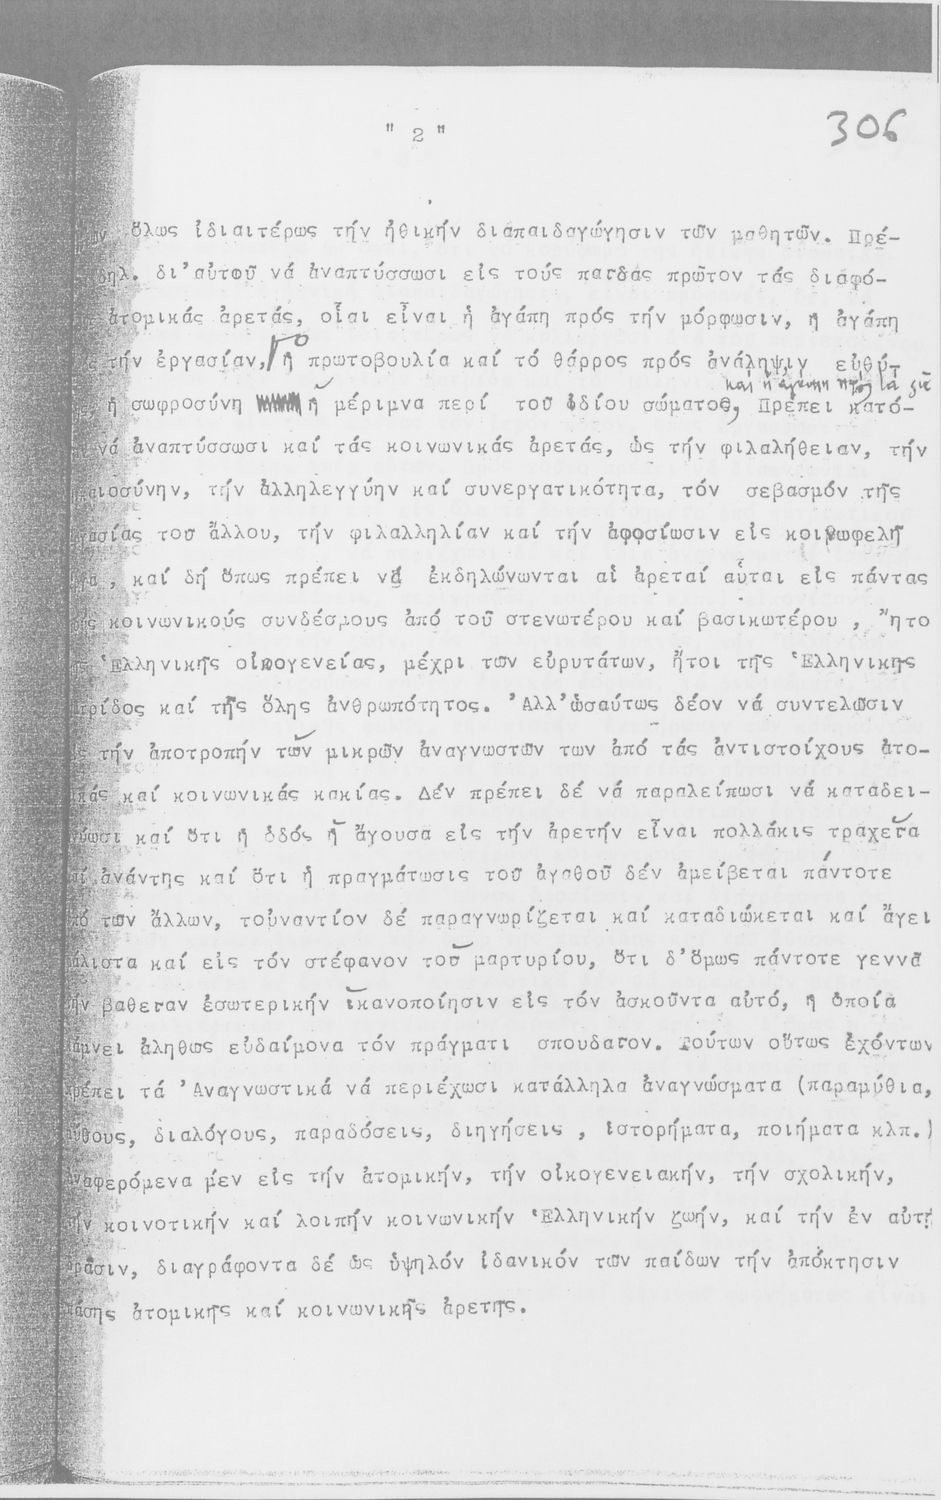 306
" 2 "
ὅλως ἰδιαιτέρως τήν ἠθικήν διαπαιδαγώγησιν τῶν μαθητῶν. Πρέ-
δηλ. δι'αὐτοῦ νά ἀναπτύσσωσι εἰς τούς παῖδας πρῶτον τάς διαφό-
ἀτομικάς ἀρετάς, οἷαι εἶναι ἡ ἀγάπη πρός τήν μόρφωσιν, ἡ ἀγάπη
τήν ἐργασίαν, ἡ πρωτοβουλία καί τό θάρρος πρός ἀνάληψιν εὐθύ-
καί ἡ ἀγάπη πρός τά
ἡ σωφροσύνη ἡ μέριμνα περί τοῦ ἰδίου σώματος, Πρέπει κατό-
νά ἀναπτύσσωσι καί τάς κοινωνικάς ἀρετάς, ὡς τήν φιλαλήθειαν, τήν
αιοσύνην, τήν ἀλληλεγγύην καί συνεργατικότητα, τόν σεβασμόν τῆς
γασίας τοῦ ἄλλου, τήν φιλαλληλίαν καί τήν ἀφοσίωσιν εἰς κοινωφελῆ
, καί δή ὅπως πρέπει νά ἐκδηλώνωνται αἱ ἀρεταί αὗται εἰς πάντας
κοινωνικούς συνδέσμους ἀπό τοῦ στενωτέρου καί βασικωτέρου , ἤτο
Ἑλληνικῆς οἰκογενείας, μέχρι τῶν εὐρυτάτων, ἤτοι τῆς Ἑλληνικῆς
τρίδος καί τῆς ὅλης ἀνθρωπότητος. Ἀλλ'ὡσαύτως δέον νά συντελῶσιν
τήν ἀποτροπήν τῶν μικρῶν ἀναγνωστῶν των ἀπό τάς ἀντιστοίχους ἀτο-
κάς καί κοινωνικάς κακίας. Δέν πρέπει δέ νά παραλείπωσι νά καταδει-
νύωσι καί ὅτι ἡ ὁδός ἡ ἄγουσα εἰς τήν ἀρετήν εἶναι πολλάκις τραχεῖα
καί ἀνάντης καί ὅτι ἡ πραγμάτωσις τοῦ ἀγαθοῦ δέν ἀμείβεται πάντοτε
πό τῶν ἄλλων, τοὐναντίον δέ παραγνωρίζεται καί καταδιώκεται καί ἄγει
άλιστα καί εἰς τόν στέφανον τοῦ μαρτυρίου, ὅτι δ'ὅμως πάντοτε γεννᾶ
ήν βαθεῖαν ἐσωτερικήν ἱκανοποίησιν εἰς τόν ἀσκοῦντα αὐτό, ἡ ὁποία
άμνει ἀληθῶς εὐδαίμονα τόν πράγματι σπουδαῖον. Τούτων οὕτως ἐχόντων
πρέπει τά Ἀναγνωστικά νά περιέχωσι κατάλληλα ἀναγνώσματα (παραμύθια,
ύθους, διαλόγους, παραδόσεις, διηγήσεις , ἱστορήματα, ποιήματα κλπ.)
ἀναφερόμενα μέν εἰς τήν ἀτομικήν, τήν οἰκογενειακήν, τήν σχολικήν,
ήν κοινοτικήν καί λοιπήν κοινωνικήν Ἑλληνικήν ζωήν, καί τήν ἐν αὐτῇ
δρᾶσιν, διαγράφοντα δέ ὡς ὑψηλόν ἰδανικόν τῶν παίδων τήν ἀπόκτησιν
πάσης ἀτομικῆς καί κοινωνικῆς ἀρετῆς.